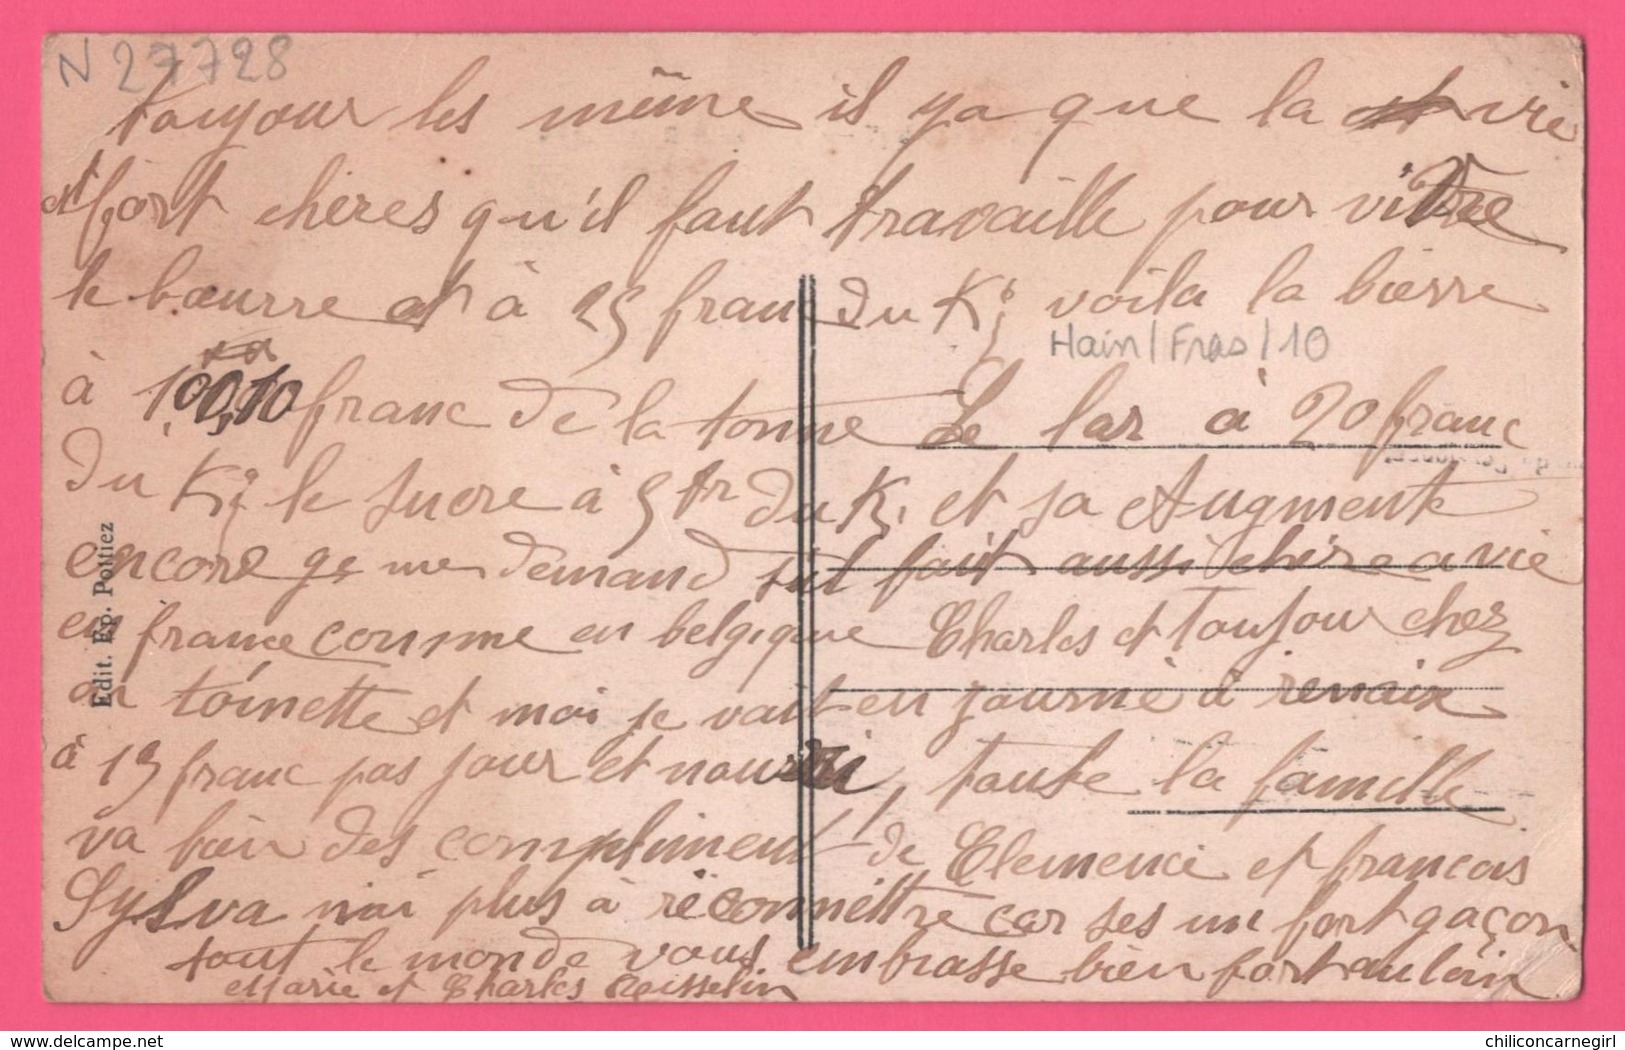 N 27728
toujour les même il ya que la vie
et fort chères qu'il faut travaille pour vivre
le bæurre et à 25 franc du K; voila la bierre
Hain/Fras/10
à 100,10 franc de la tonne Le lar à 20 franc
du K; le sucre à 5 fr du K, et sa Augmente
encore ge me demand s'il fait aussi chère a vie
en france comme en belgique Charles et toujour chez
an toinette et moi je vait en journé à renaix
à 13 franc pas jour et nourri, toute la famille
va bien des compliment de Clemence et francois
Sylva n'ai plus à réconnéttre car ses un fort gaçon
tout le monde vous embrasse bien fort au loin
Marie et Charles
Edit. Ep. Pottiez
delcampe.net
chiliconcarnegirl